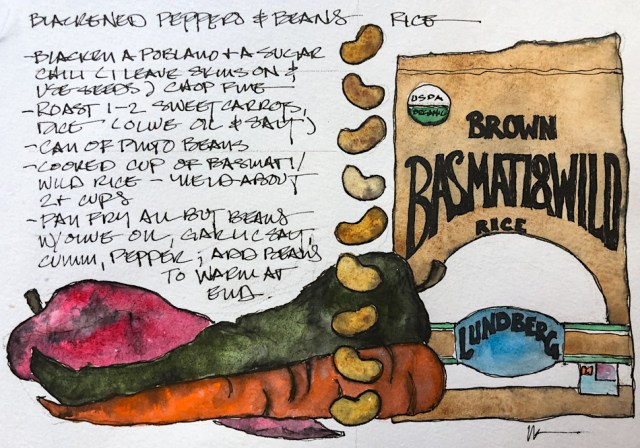 BLACKENED PEPPERS & BEANS RICE
- BLACKEN A POBLANO + A SUGAR
CHILI (I LEAVE SKINS ON &
USE SEEDS) CHOP FINE
- ROAST 1-2 SWEET CARROTS,
DICE (OLIVE OIL & SALT)
- CAN OF PINTO BEANS
- COOKED CUP OF BASMATI/
WILD RICE - YIELD ABOUT
2+ CUPS
- PAN FRY ALL BUT BEANS
W/ OLIVE OIL, GARLIC SALT,
CUMIN, PEPPER; ADD BEANS
TO WARM AT
END.
USDA
ORGANIC
BROWN
BASMATI & WILD
RICE
LUNDBERG